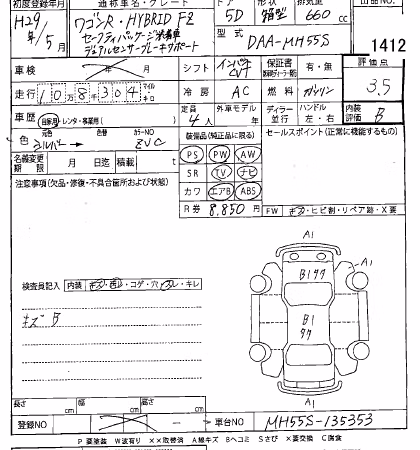 初度登録年月 通称車名・グレード ドア 形状 排気量 出品NO.
H29年/5月 ワゴンR・HYBRID FZ 5D 箱型 660cc
セーフティパッケージ装着車
デュアルセンサーブレーキサポート
型式 DAA-MH55S 1412
車検 年 月 シフト インパネ CVT 保証書 有・無 評価点
走行 10万8千304 マイル キロ 冷房 AC 燃料 ガソリン 3.5
車歴 自家用・レンタ・事業用( ) 定員 4人 外車モデル 年 ディーラー 並行 ハンドル 左・右 内装評価 B
色 元色 シルバー 色 カラーNO ZVC
装備品(純正品に限る) セールスポイント(正常に機能するもの)
名義変更期限 月 日迄 積載 t
PS PW AW
SR TV ナビ
カワ エアB ABS
R券 8,850円
注意事項(欠品・修復・不具合箇所および状態)
FW キズ・ヒビ割・リペア跡・X要
検査員記入 内装 キズ・コゲ・穴・スレ・キレ
キズ B
A1
B1ﾀﾃ
A1
B1
ﾀﾃ
A1
長さ cm 幅 cm 高さ cm
登録NO — 車台NO MH55S-135353
P 要塗装 W波有り ××取替済 A線キズ Bヘコミ Sさび ×要交換 C腐食